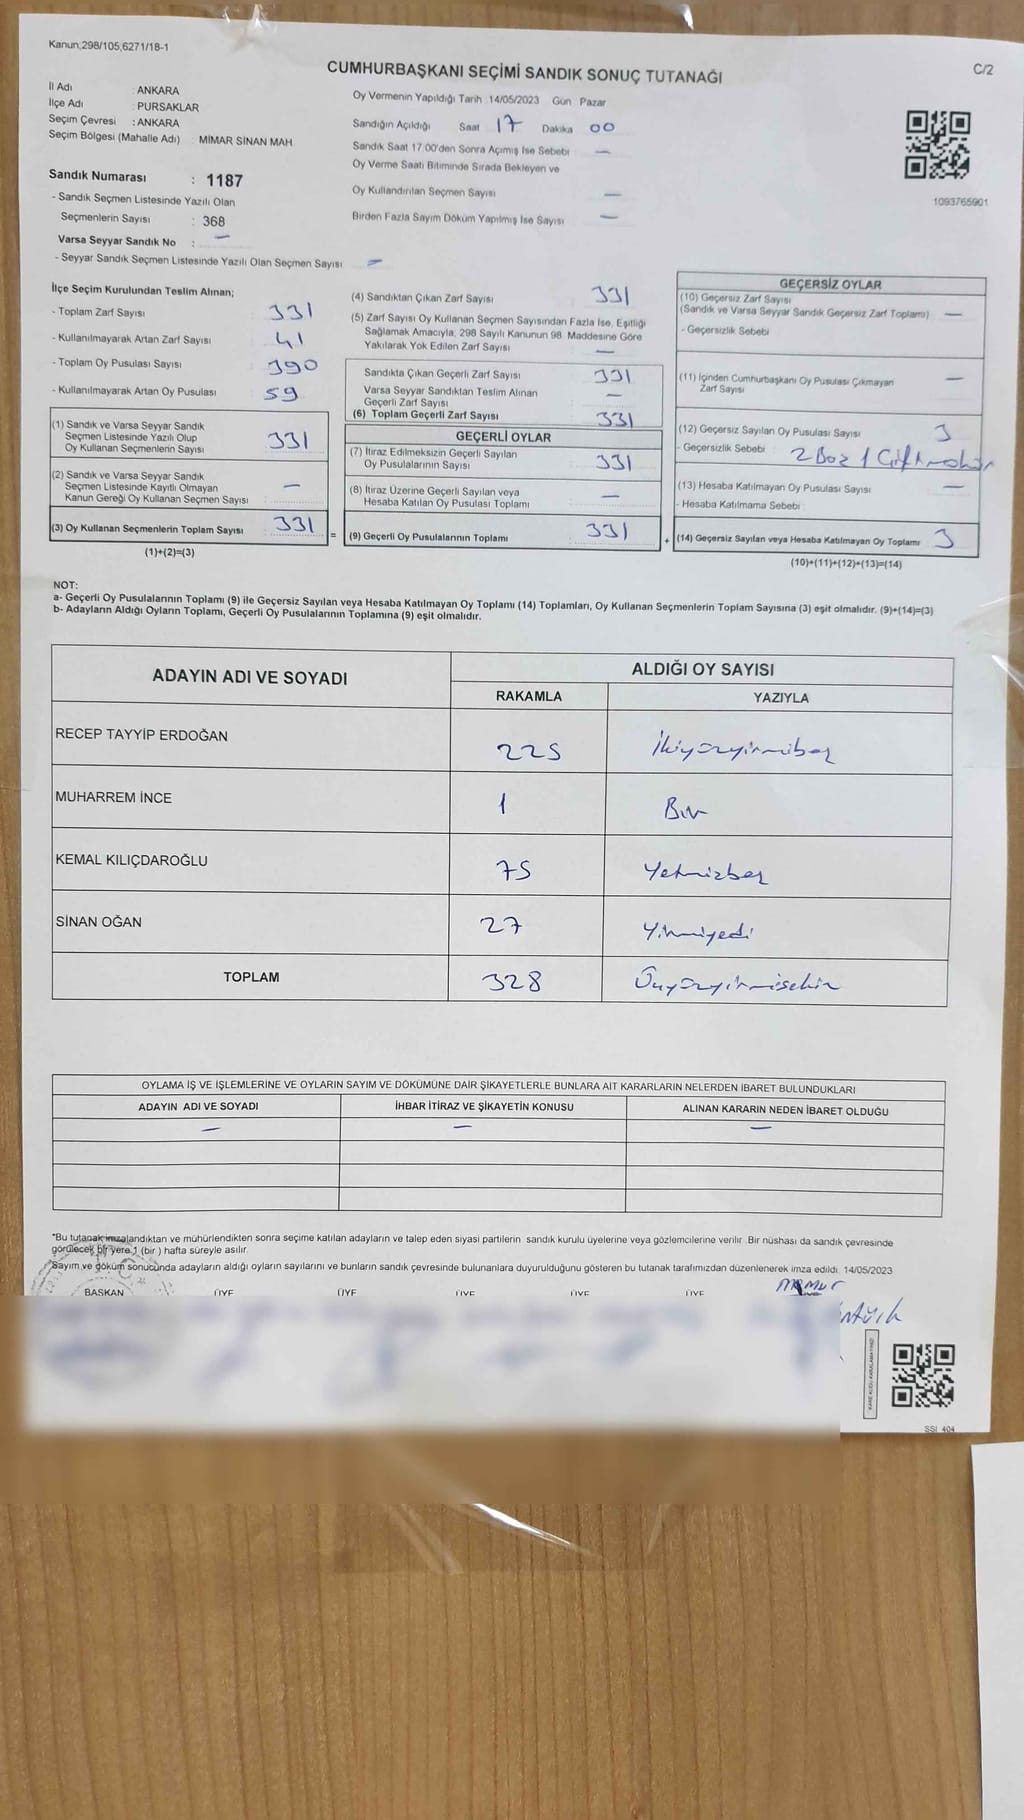 Kanun;298/105,6271/18-1
C/2
CUMHURBAŞKANI SEÇİMİ SANDIK SONUÇ TUTANAĞI
İl Adı : ANKARA
İlçe Adı : PURSAKLAR
Seçim Çevresi : ANKARA
Seçim Bölgesi (Mahalle Adı) : MİMAR SİNAN MAH.
Sandık Numarası : 1187
- Sandık Seçmen Listesinde Yazılı Olan
Seçmenlerin Sayısı : 368
Varsa Seyyar Sandık No : —
- Seyyar Sandık Seçmen Listesinde Yazılı Olan Seçmen Sayısı : —
Oy Vermenin Yapıldığı Tarih :14/05/2023 Gün : Pazar
Sandığın Açıldığı Saat 17 Dakika 00
Sandık Saat 17.00'den Sonra Açımış İse Sebebi : —
Oy Verme Saati Bitiminde Sırada Bekleyen ve
Oy Kullandırılan Seçmen Sayısı —
Birden Fazla Sayım Döküm Yapılmış İse Sayısı —
1093765901
İlçe Seçim Kurulundan Teslim Alınan;
- Toplam Zarf Sayısı 331
- Kullanılmayarak Artan Zarf Sayısı 41
- Toplam Oy Pusulası Sayısı 390
- Kullanılmayarak Artan Oy Pusulası 59
(1) Sandık ve Varsa Seyyar Sandık
Seçmen Listesinde Yazılı Olup
Oy Kullanan Seçmenlerin Sayısı 331
(2) Sandık ve Varsa Seyyar Sandık
Seçmen Listesinde Kayıtlı Olmayan
Kanun Gereği Oy Kullanan Seçmen Sayısı : —
(3) Oy Kullanan Seçmenlerin Toplam Sayısı : 331
(1)+(2)=(3)
=
(4) Sandıktan Çıkan Zarf Sayısı 331
(5) Zarf Sayısı Oy Kullanan Seçmen Sayısından Fazla İse, Eşitliği
Sağlamak Amacıyla, 298 Sayılı Kanunun 98. Maddesine Göre
Yakılarak Yok Edilen Zarf Sayısı —
Sandıkta Çıkan Geçerli Zarf Sayısı 331
Varsa Seyyar Sandıktan Teslim Alınan
Geçerli Zarf Sayısı —
(6) Toplam Geçerli Zarf Sayısı 331
GEÇERLİ OYLAR
(7) İtiraz Edilmeksizin Geçerli Sayılan
Oy Pusulalarının Sayısı 331
(8) İtiraz Üzerine Geçerli Sayılan veya
Hesaba Katılan Oy Pusulası Toplamı —
(9) Geçerli Oy Pusulalarının Toplamı 331
+
GEÇERSİZ OYLAR
(10) Geçersiz Zarf Sayısı
(Sandık ve Varsa Seyyar Sandık Geçersiz Zarf Toplamı) : —
- Geçersizlik Sebebi :
(11) İçinden Cumhurbaşkanı Oy Pusulası Çıkmayan
Zarf Sayısı —
(12) Geçersiz Sayılan Oy Pusulası Sayısı 3
- Geçersizlik Sebebi : 2 Boz 1 Çift mühür
(13) Hesaba Katılmayan Oy Pusulası Sayısı —
- Hesaba Katılmama Sebebi :
(14) Geçersiz Sayılan veya Hesaba Katılmayan Oy Toplamı 3
(10)+(11)+(12)+(13)=(14)
NOT:
a- Geçerli Oy Pusulalarının Toplamı (9) ile Geçersiz Sayılan veya Hesaba Katılmayan Oy Toplamı (14) Toplamları, Oy Kullanan Seçmenlerin Toplam Sayısına (3) eşit olmalıdır. (9)+(14)=(3)
b- Adayların Aldığı Oyların Toplamı, Geçerli Oy Pusulalarının Toplamına (9) eşit olmalıdır.
ADAYIN ADI VE SOYADI ALDIĞI OY SAYISI
RAKAMLA YAZIYLA
RECEP TAYYİP ERDOĞAN 225 İkiyüzyirmibeş
MUHARREM İNCE 1 Bir
KEMAL KILIÇDAROĞLU 75 Yetmişbeş
SİNAN OĞAN 27 Yirmiyedi
TOPLAM 328 Üçyüzyirmisekiz
OYLAMA İŞ VE İŞLEMLERİNE VE OYLARIN SAYIM VE DÖKÜMÜNE DAİR ŞİKAYETLERLE BUNLARA AİT KARARLARIN NELERDEN İBARET BULUNDUKLARI
ADAYIN ADI VE SOYADI İHBAR İTİRAZ VE ŞİKAYETİN KONUSU ALINAN KARARIN NEDEN İBARET OLDUĞU
— — —
"Bu tutanak imzalandıktan ve mühürlendikten sonra seçime katılan adayların ve talep eden siyasi partilerin sandık kurulu üyelerine veya gözlemcilerine verilir .Bir nüshası da sandık çevresinde
görülecek bir yere 1 (bir ) hafta süreyle asılır.
Sayım ve döküm sonucunda adayların aldığı oyların sayılarını ve bunların sandık çevresinde bulunanlara duyurulduğunu gösteren bu tutanak tarafımızdan düzenlenerek imza edildi. 14/05/2023
BAŞKAN ÜYE ÜYE ÜYE ÜYE ÜYE memur
SSİ_404